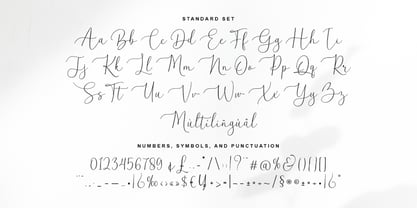 STANDARD SET
Aa Bb Cc Dd Ee Ff Gg Hh Ii
Jj Kk Ll Mm Nn Oo Pp Qq Rr
Ss Tt Uu Vv Ww Xx Yy Zz
Mùltilìñgúâl
NUMBERS, SYMBOLS, AND PUNCTUATION
0123456789